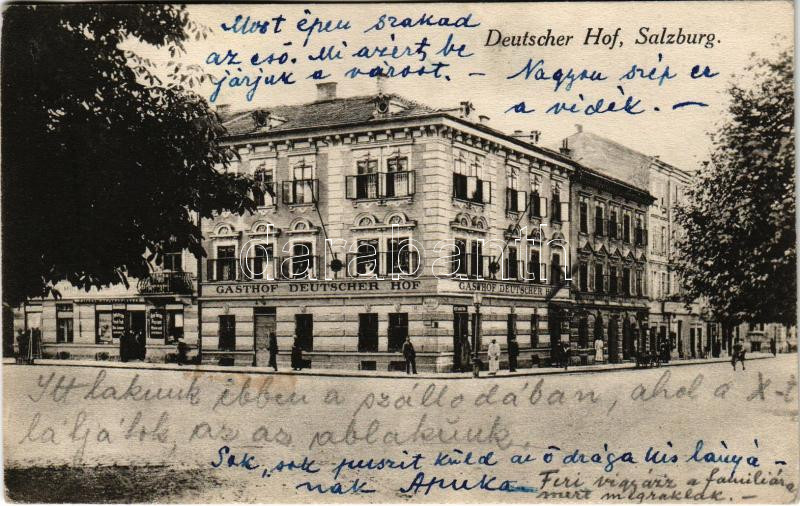 Most épen szakad
az eső. Mi azért be
járjuk a várost. —
Deutscher Hof, Salzburg.
Nagyon szép ez
a vidék. —
darabanth
GASTHOF DEUTSCHER HOF
GASTHOF DEUTSCHER HOF
Itt lakunk ebben a szállodában, ahol a X-t
látjátok, az az ablakunk.
Sok, sok puszit küld az ő drága kis lányá-
nak Apuka
Feri vigyázz a familiára
mert megraklak. —